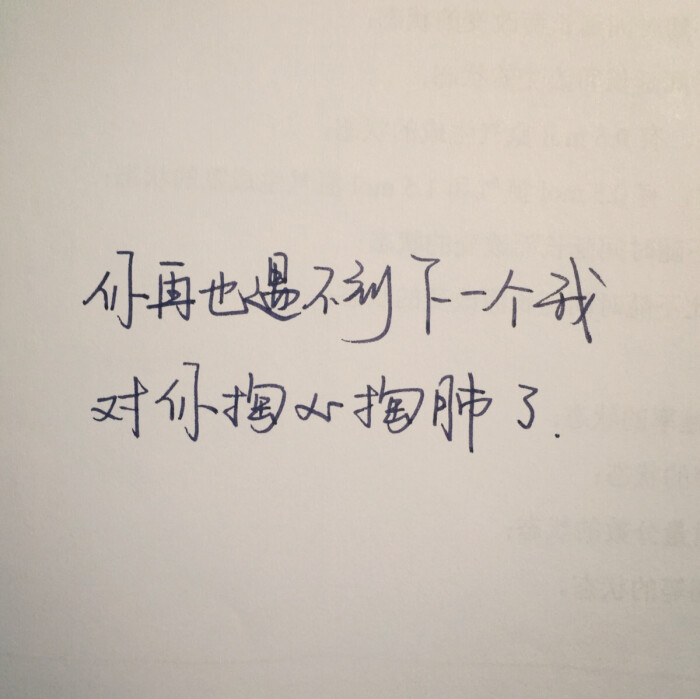 你再也遇不到下一个我
对你掏心掏肺了.